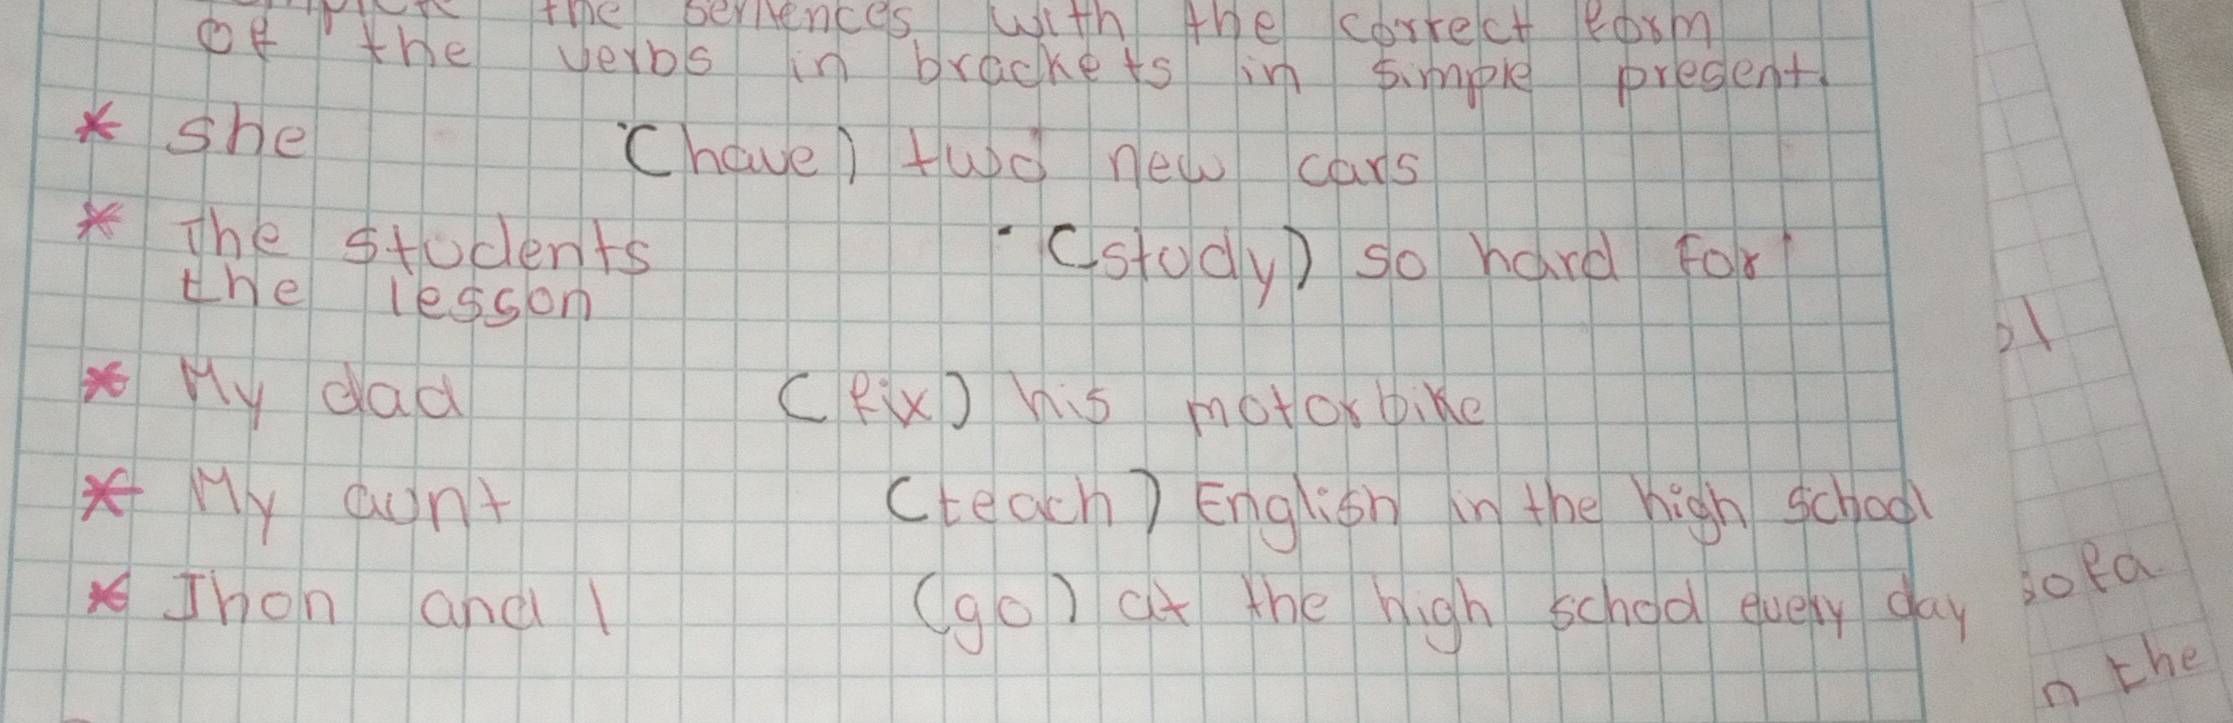 the sentences with the correct form
of the verbs in brackets in simple present.
* she (have) two new cars
* The students (study) so hard for
the lesson
* My dad (fix) his motorbike
* My aunt (teach) English in the high school
* Jhon and I (go) at the high school every day
sofa
n the